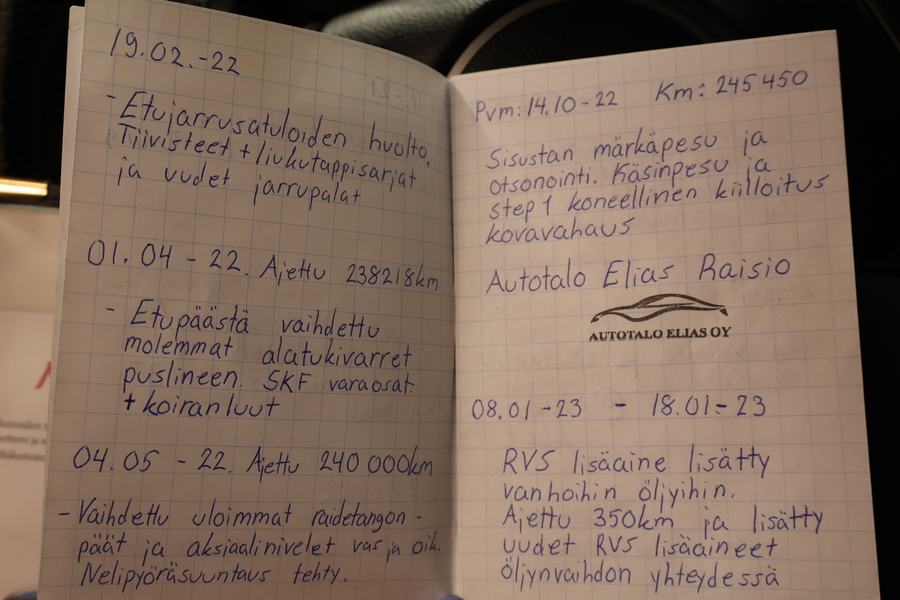 19.02.-22
- Etujarrusatuloiden huolto,
Tiivisteet + liukutappisarjat
ja uudet jarrupalat
01.04 - 22. Ajettu 238218km
- Etupäästä vaihdettu
molemmat alatukivarret
puslineen. SKF varaosat.
+ koiranluut
04.05 - 22. Ajettu 240 000km
- Vaihdettu uloimmat raidetangon-
päät ja aksiaalinivelet vas ja oik.
Nelipyöräsuuntaus tehty.
Pvm: 14.10 - 22 Km: 245 450
Sisustan märkäpesu ja
otsonointi. Käsinpesu ja
step 1 koneellinen kiilloitus
kovavahaus
Autotalo Elias Raisio
AUTOTALO ELIAS OY
08.01 - 23 - 18.01 - 23
RVS lisäaine lisätty
vanhoihin öljyihin.
Ajettu 350km ja lisätty
uudet RVS lisäaineet
öljynvaihdon yhteydessä